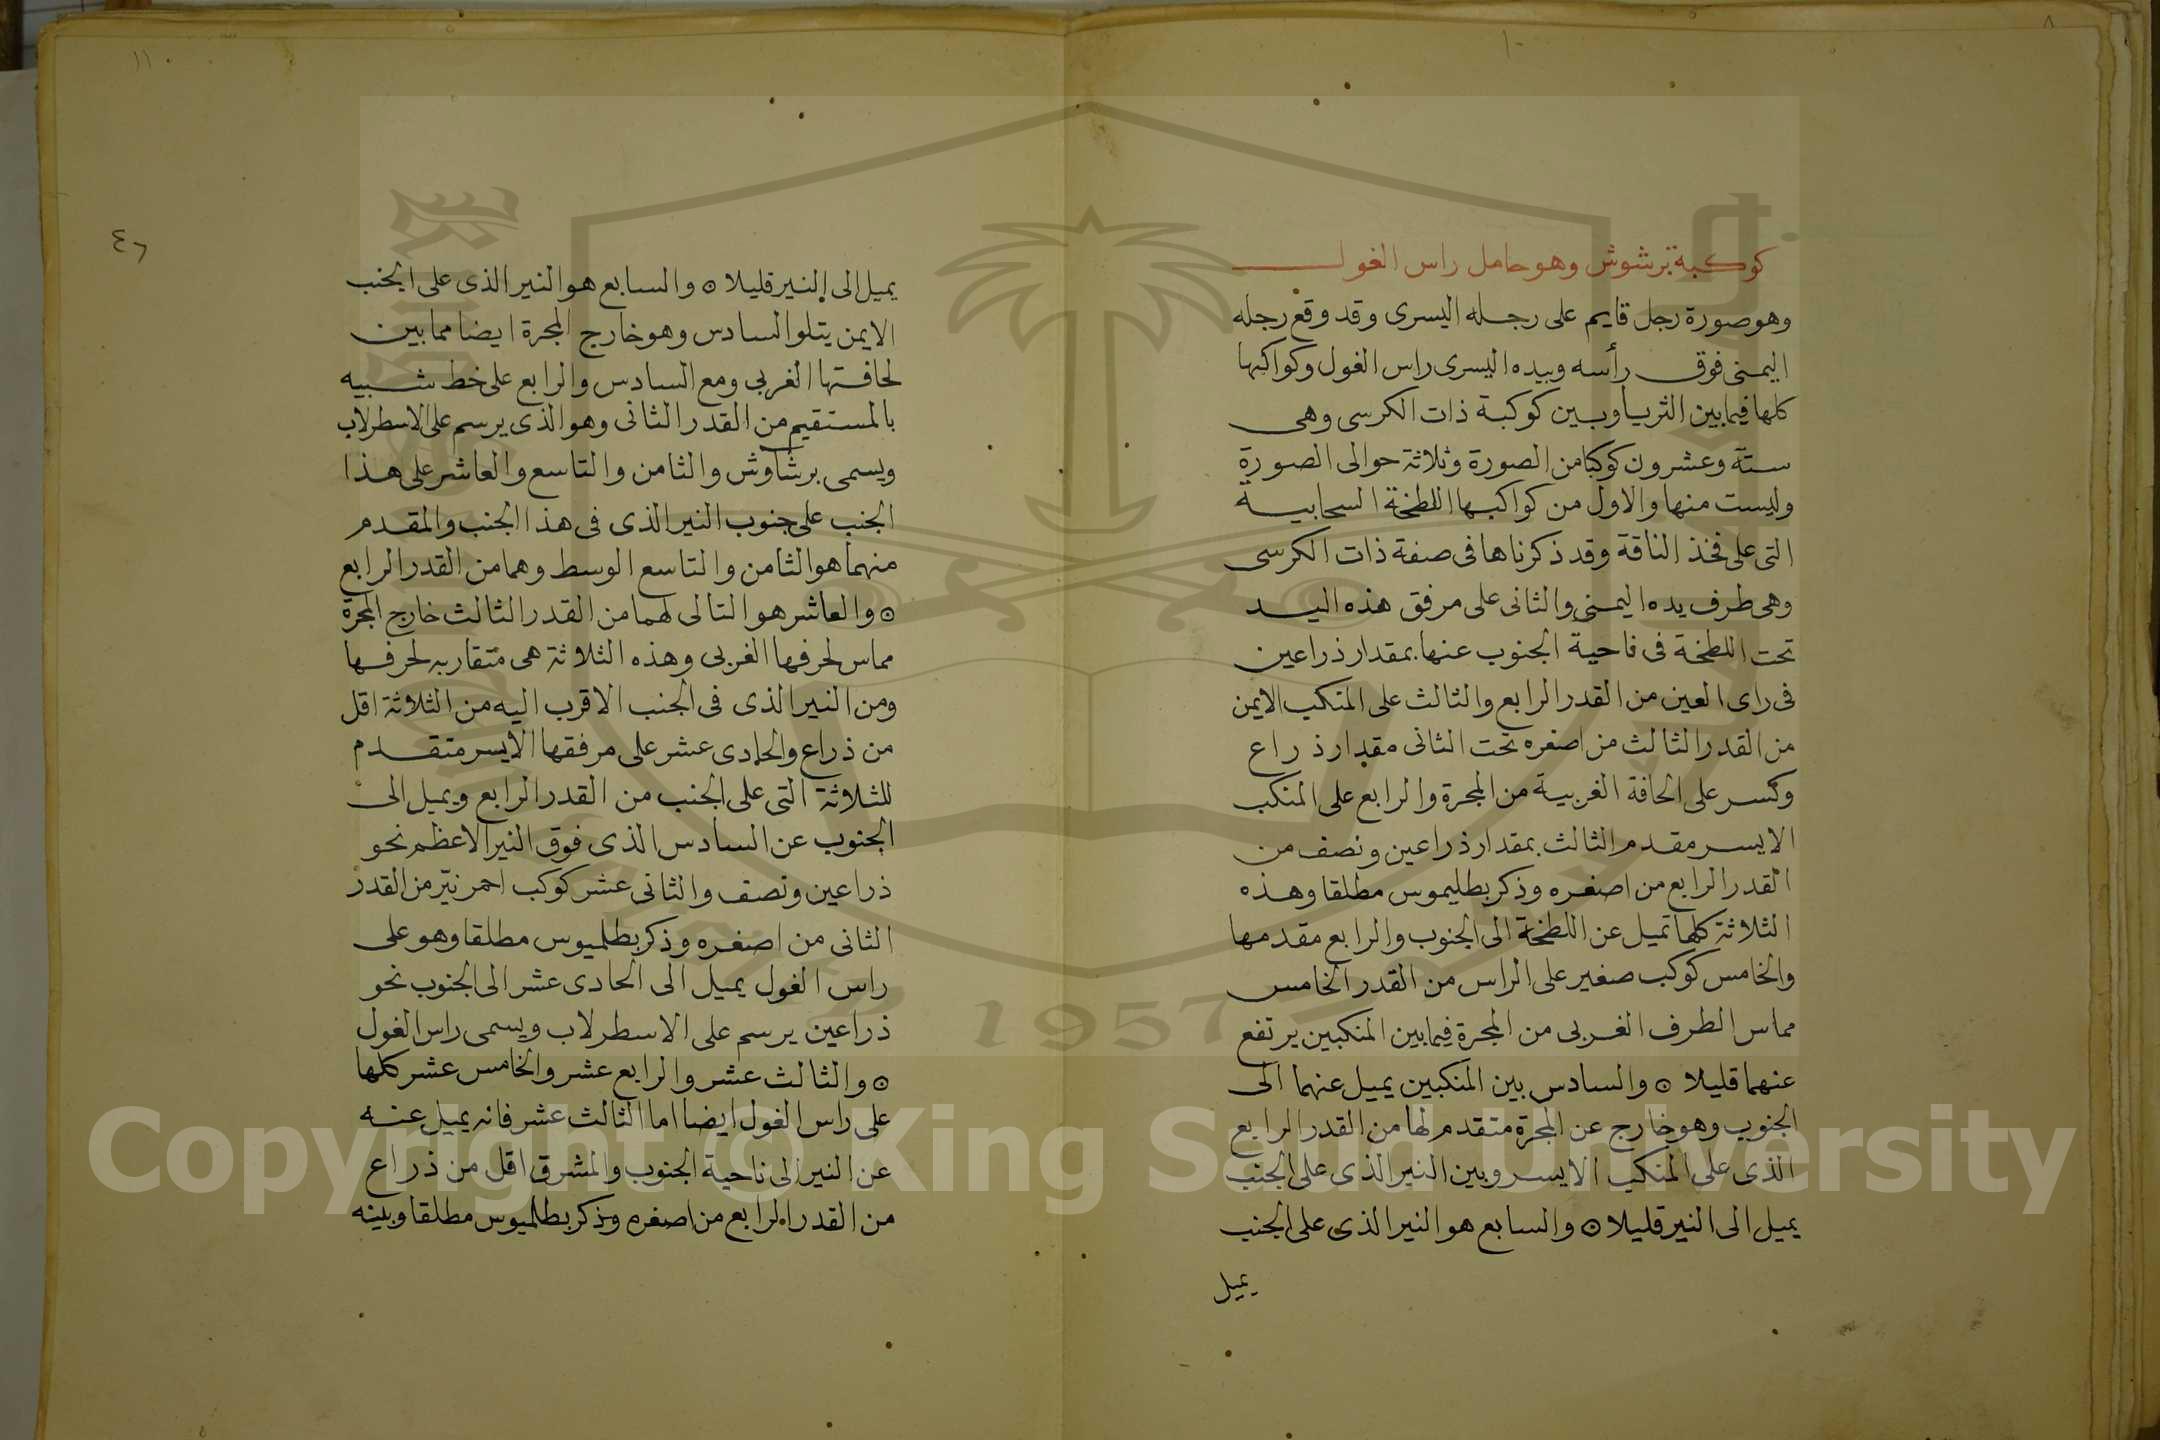 ١٠
كوكبة برشوش وهو حامل راس الغول
وهو صورة رجل قايم على رجله اليسرى وقد وقع رجله
اليمنى فوق رأسه وبيده اليسرى راس الغول وكواكبها
كلها فيما بين الثريا وبين كوكبة ذات الكرسى وهى
ستة وعشرون كوكبا من الصورة وثلاثة حوالى الصورة
وليست منها والاول من كواكبها اللطخة السحابية
التى على فخذ الناقة وقد ذكرناها فى صفة ذات الكرسى
وهى طرف يده اليمنى والثانى على مرفق هذه اليد
تحت اللطخة فى ناحية الجنوب عنها بمقدار ذراعين
فى راى العين من القدر الرابع والثالث على المنكب الايمن
من القدر الثالث من اصغره تحت الثانى مقدار ذراع
وكسر على الحافة الغربية من المجرة والرابع على المنكب
الايسر مقدم الثالث بمقدار ذراعين ونصف من
القدر الرابع من اصغره وذكر بطليموس مطلقا وهذه
الثلاثة كلها تميل عن اللطخة الى الجنوب والرابع مقدمها
والخامس كوكب صغير على الراس من القدر الخامس
مماس الطرف الغربى من المجرة فيما بين المنكبين يرتفع
عنهما قليلا ⊙ والسادس بين المنكبين يميل عنهما الى
الجنوب وهو خارج عن المجرة متقدم لها من القدر الرابع
الذى على المنكب الايسر وبين النير الذى على الجنب
يميل الى النير قليلا ⊙ والسابع هو النير الذى على الجنب
يميل
١١
٤٦
يميل الى النير قليلا ⊙ والسابع هو النير الذى على الجنب
الايمن يتلو السادس وهو خارج المجرة ايضا مما بين
لحافتها الغربى ومع السادس والرابع على خط شبيه
بالمستقيم من القدر الثانى وهو الذى يرسم على الاسطرلاب
ويسمى برشاوش والثامن والتاسع والعاشر على هذا
الجنب على جنوب النير الذى فى هذا الجنب والمقدم
منهما هو الثامن والتاسع الوسط وهما من القدر الرابع
⊙ والعاشر هو التالى لهما من القدر الثالث خارج المجرة
مماس لحرفها الغربى وهذه الثلاثة هى متقاربه لحرفها
ومن النير الذى فى الجنب الاقرب اليه من الثلاثة اقل
من ذراع والحادى عشر على مرفقها الايسر متقدم
للثلاثة التى على الجنب من القدر الرابع ويميل الى
الجنوب عن السادس الذى فوق النير الاعظم نحو
ذراعين ونصف والثانى عشر كوكب احمر نيّر من القدر
الثانى من اصغره وذكر بطلميوس مطلقا وهو على
راس الغول يميل الى الحادى عشر الى الجنوب نحو
ذراعين يرسم على الاسطرلاب ويسمى راس الغول
⊙ والثالث عشر والرابع عشر والخامس عشر كلها
على راس الغول ايضا اما الثالث عشر فانه يميل عنه
عن النير الى ناحية الجنوب والمشرق اقل من ذراع
من القدر الرابع من اصغره وذكر بطلميوس مطلقا وبينه
1957
Copyright © King Saud University